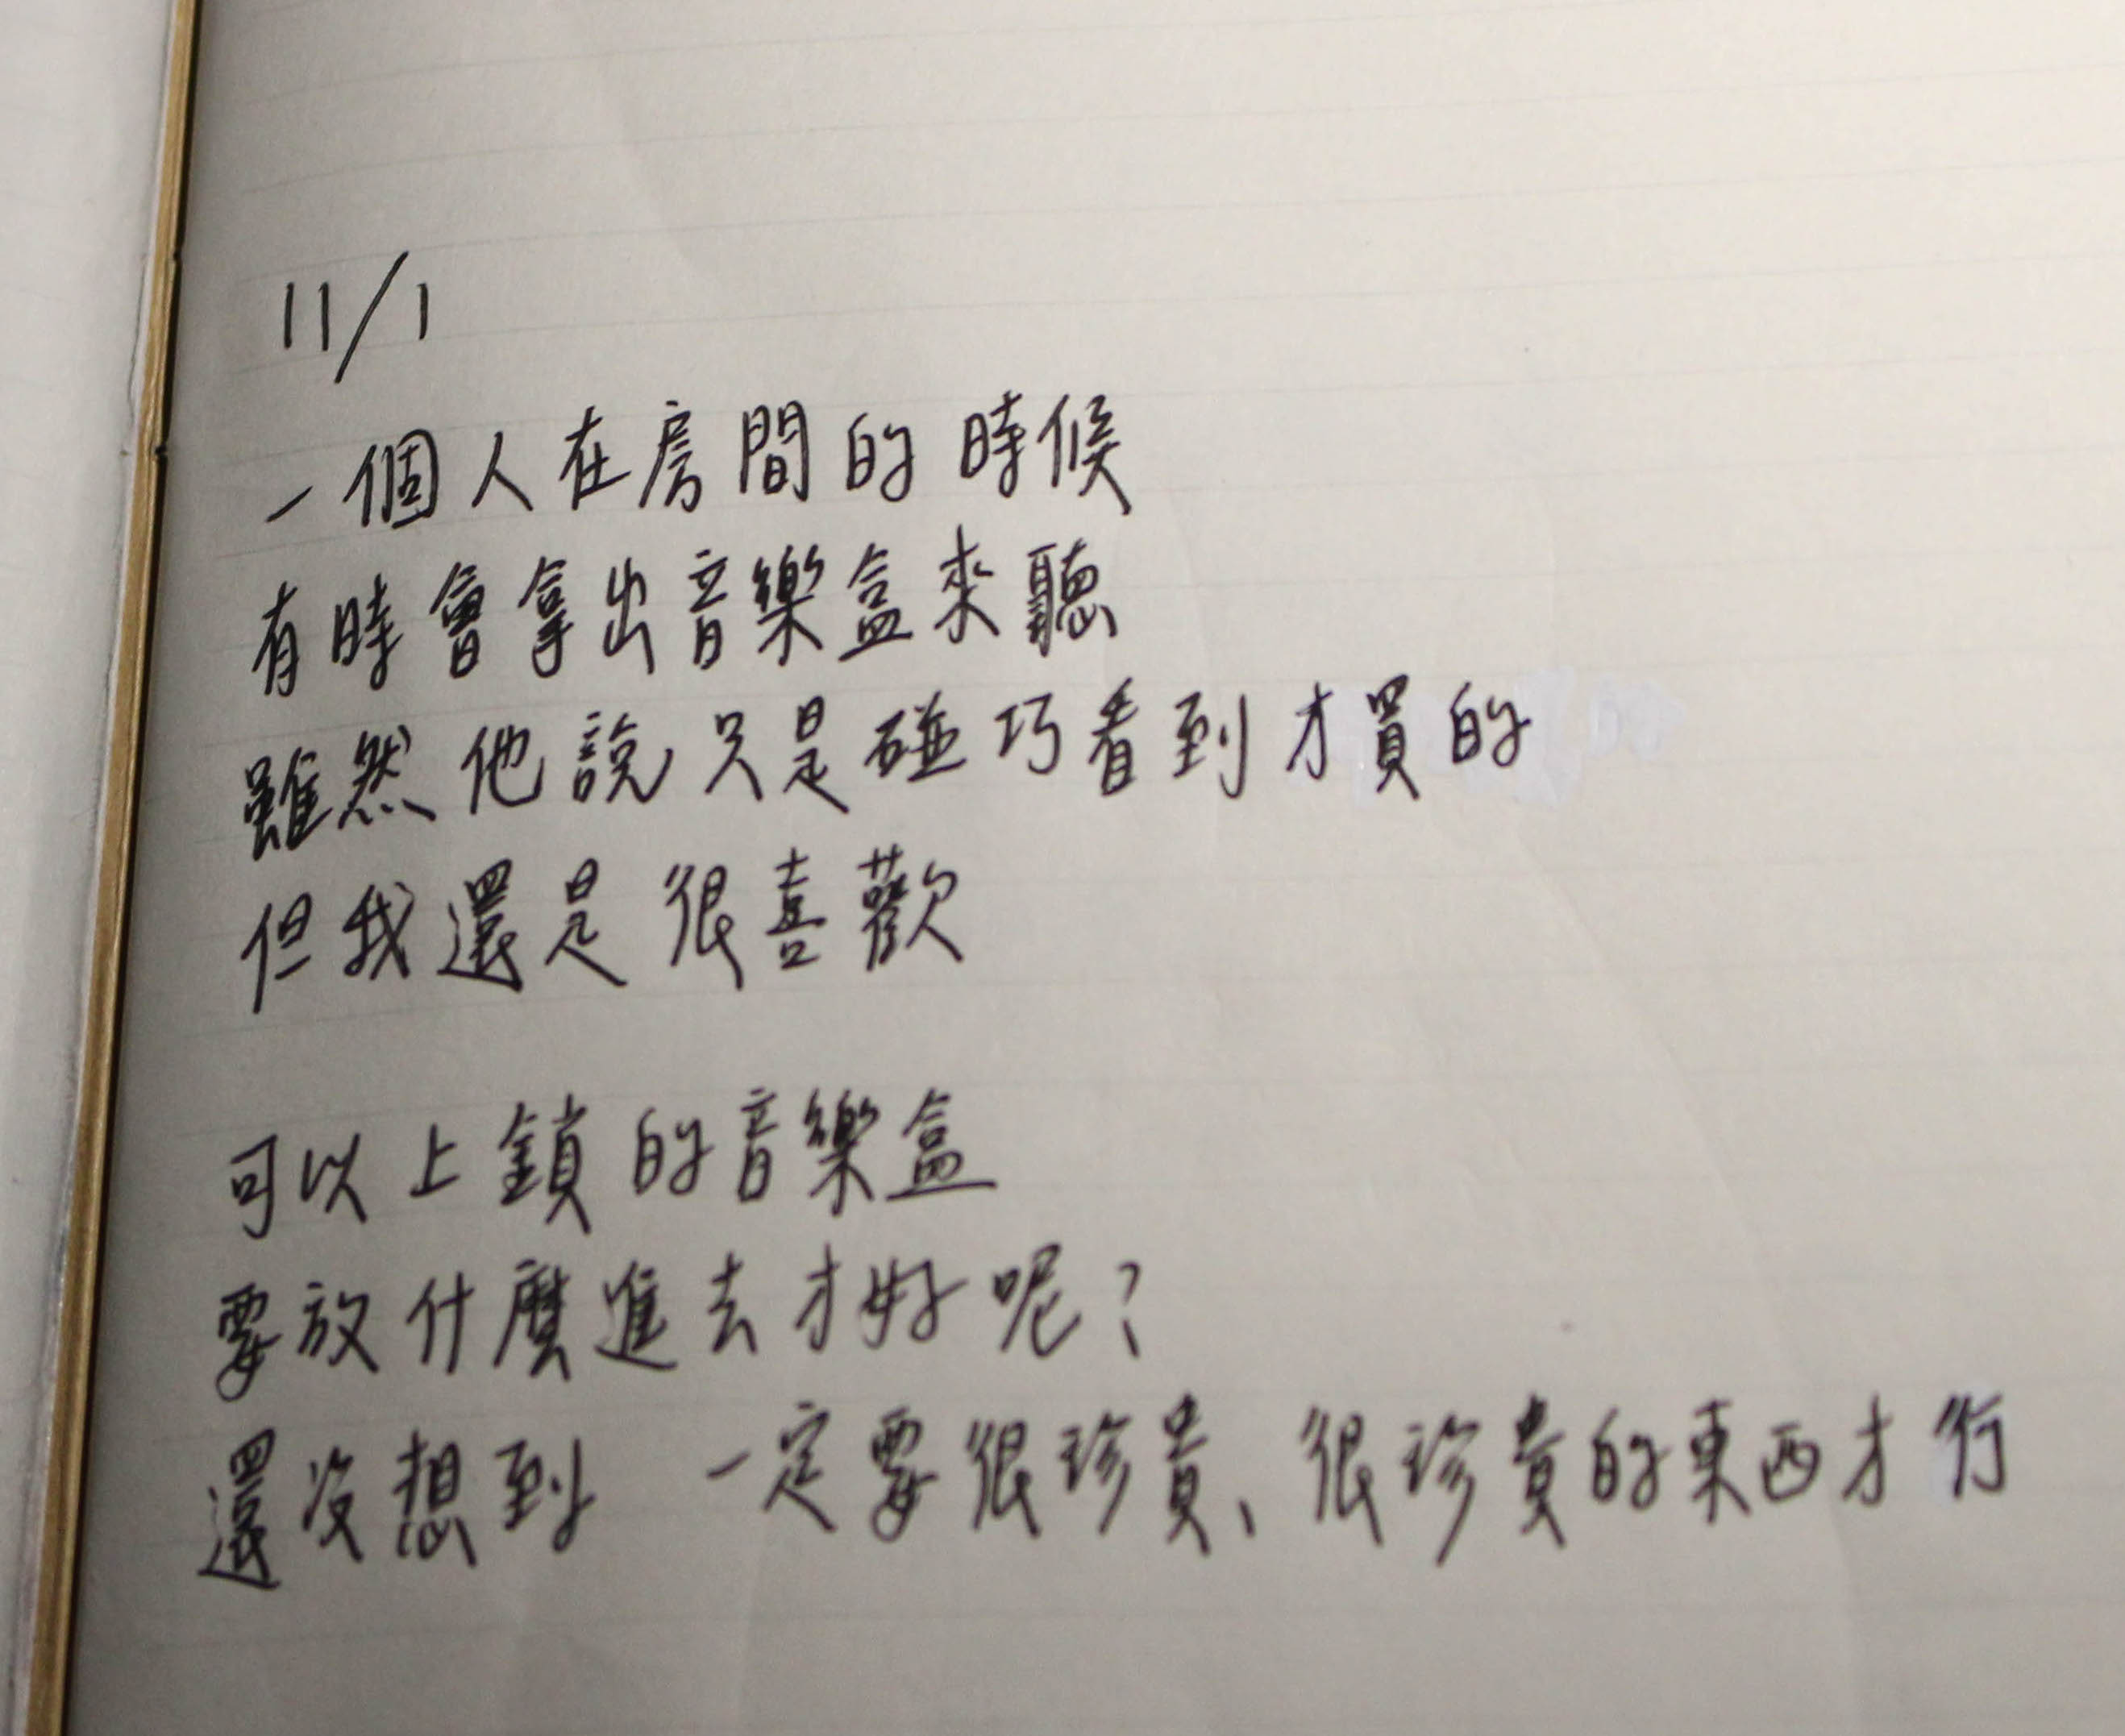 11/1
一個人在房間的時候
有時會拿出音樂盒來聽
雖然他說只是碰巧看到才買的
但我還是很喜歡
可以上鎖的音樂盒
要放什麼進去才好呢？
還沒想到 一定要很珍貴、很珍貴的東西才行